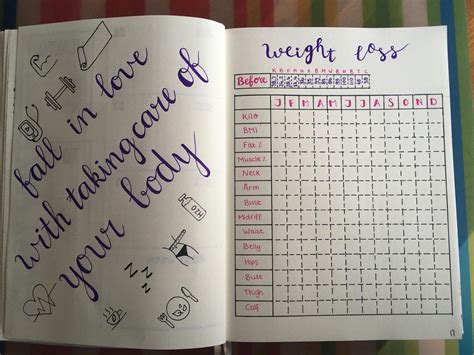 fall in love
with taking care of
your body
H2O
weight loss
K B F M N A B M W B H B T C
Before
J F M A M J J A S O N D
Kilo
BMI
Fat %
Muscle %
Neck
Arm
Bust
Midriff
Waist
Belly
Hips
Butt
Thigh
Calf